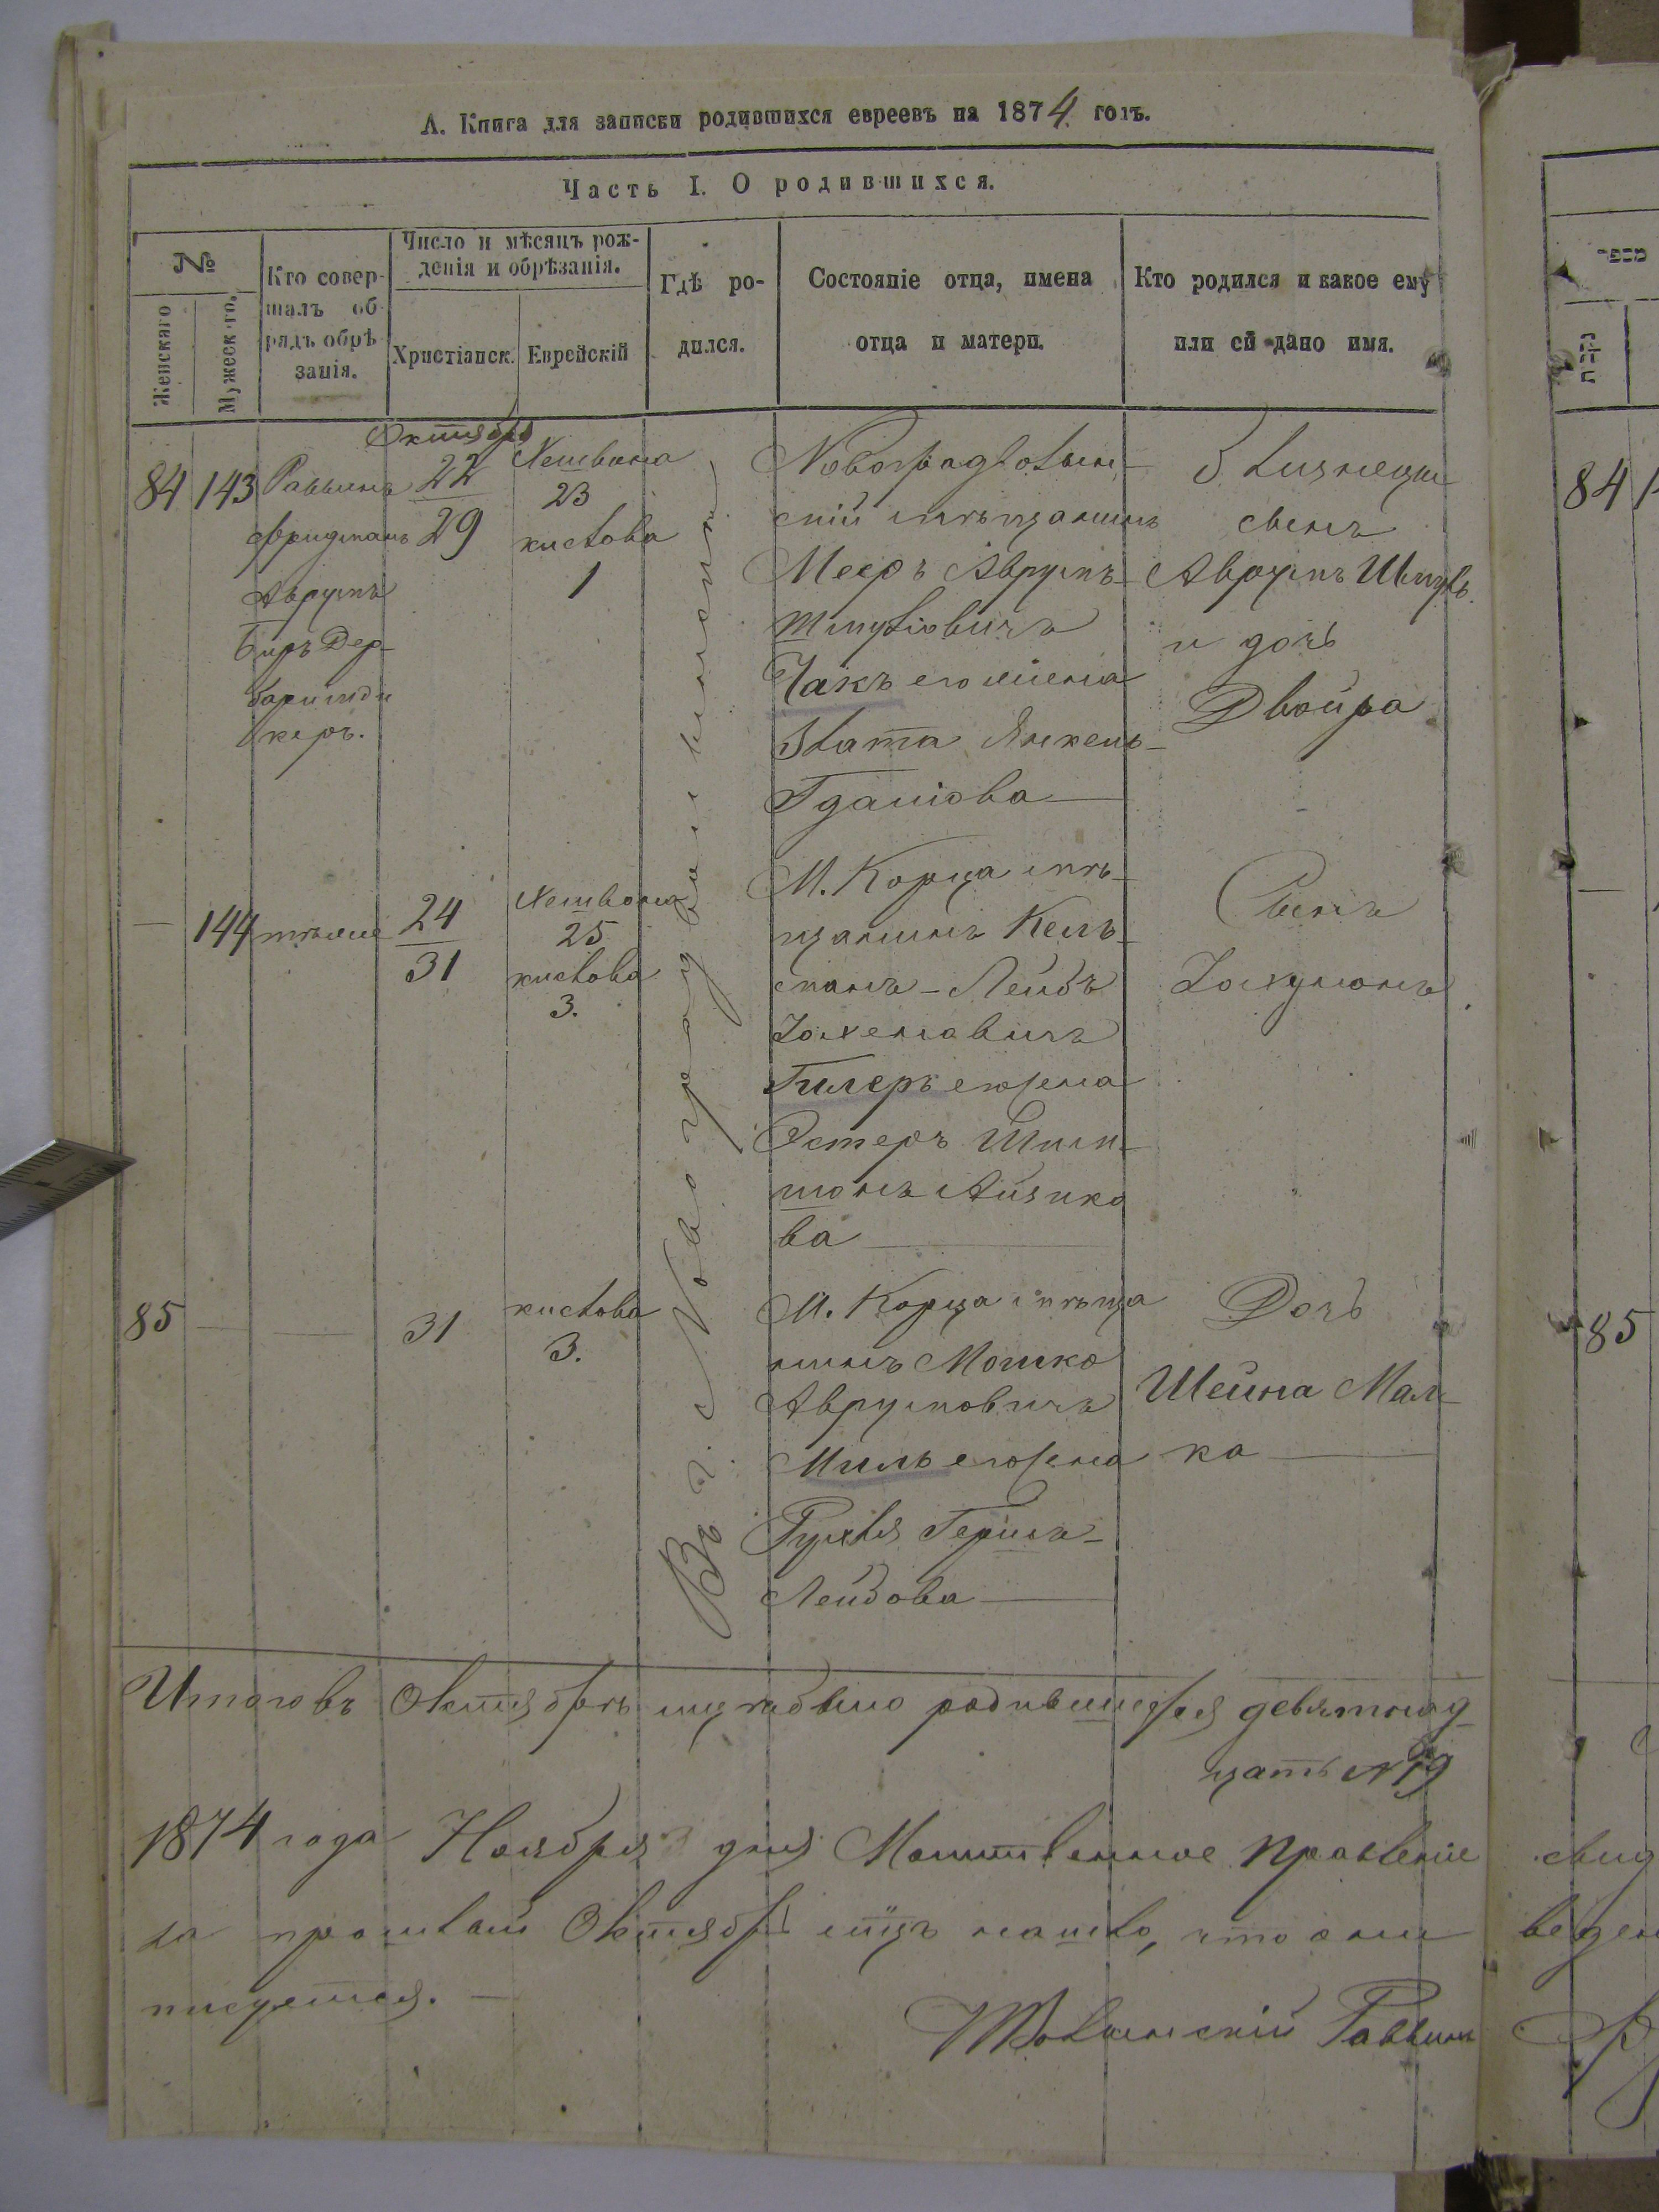 А. Книга для записки родившихся евреевъ на 1874 годъ.
Часть I. О родившихся.
№
Женскаго
Мужеск-го.
Кто совер-
шалъ об-
рядъ обрѣ-
занія.
Число и мѣсяцъ рож-
денія и обрѣзанія.
Христіанск.
Еврейскій
Гдѣ ро-
дился.
Состояніе отца, имена
отца и матери.
Кто родился и какое ему
или ей дано имя.
84
143
Раввинъ
Фридманъ
Аврумъ
Беръ Дер-
Октября
22
29
Хешвана
23
кислова
1
Новоградволын-
скій мѣщанинъ
Мееръ Аврумъ-
Шмулiовичъ
Чакъ его жена
Злата Янкель-
Гданiова
Близнецы
сынъ
Аврумъ Шмуль
и дочь
Двойра
—
144
тѣже
24
31
Хешвана
25
кислова
3.
М. Корца мѣ-
щанинъ Кель-
манъ-Лейбъ
Гилеръ его жена
Эстеръ Шим-
шонъ Айзико
ва
Сынъ
85
—
—
31
кислова
3.
М. Корца мѣща
нинъ Мошко
Аврумовичъ
Миль его жена
Рухля Гершъ-
Лейбова
Дочь
Шейна Мал-
ка
Въ г. Новоградволынскѣ
Итого въ Октябрѣ мцѣ было родившихся девятнад-
цать № 19
1874 года Ноября 3 дня Молитвенное Правленіе
за прошлый Октябрь мцъ нашло, что они
писуемся.
Раввинъ
מספר
נקבות
84
85
свид
веден